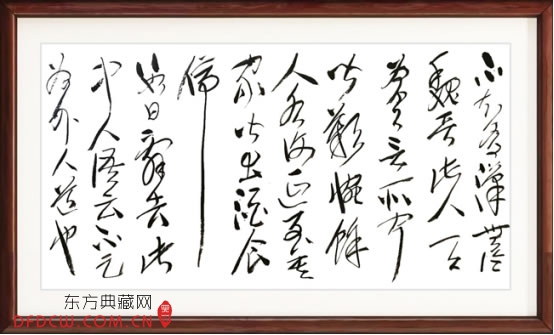 不知有漢無論
魏晋此人一一
為具言所聞
皆歎惋餘
人各復延至其
家皆出酒食
停
數日辭去此
中人語云不足
為外人道也
东方典藏网
DFDCW.COM.CN